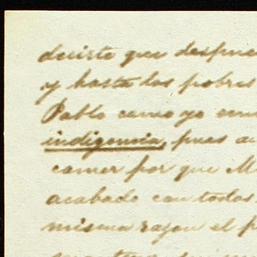 decirte que despue
y hasta los pobres
Pablo como yo
indigencia, pues a
comer por que M
acabado con todos
misma razon el p